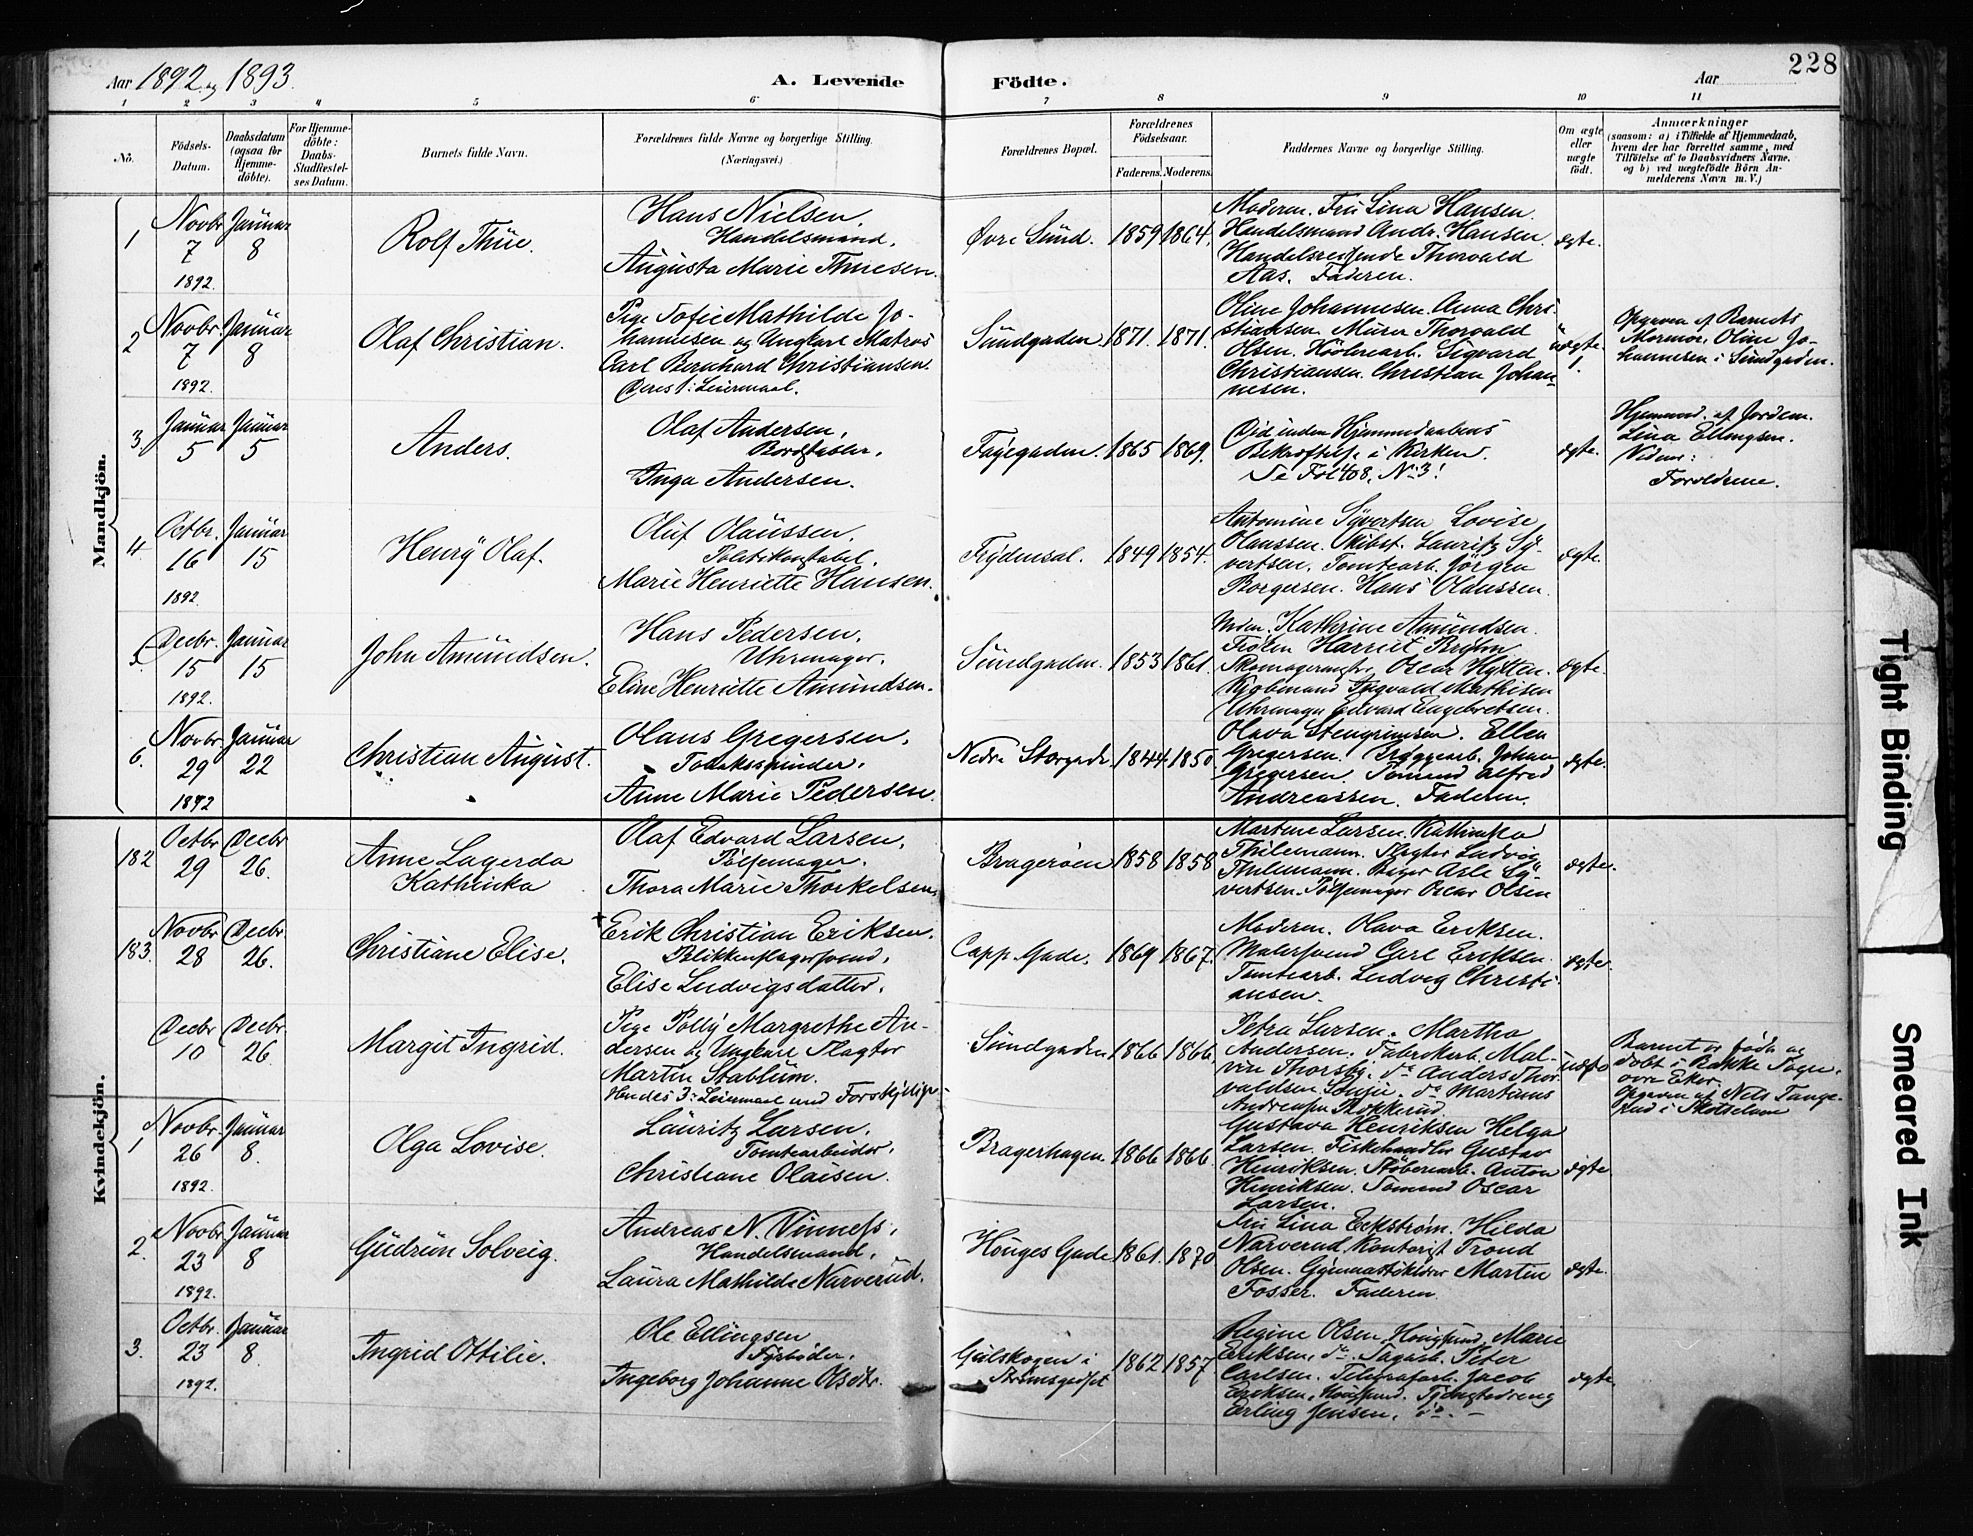 Aar 1892 og 1893.
A. Levende
Födte.
Aar
228
1 2 3 4 5 6 7 8 9 10 11
No.
Födsels-
Datum.
Daabsdatum
(ogsaa for
Hjemme-
döbte).
For Hjemme-
döbte:
Daabs-
Stadfæstel-
ses Datum.
Barnets fulde Navn.
Forældrenes fulde Navne og borgerlige Stilling.
(Næringsvei.)
Forældrenes Bopæl.
Forældrenes
Födselsaar.
Faderens. Moderens.
Faddernes Navne og borgerlige Stilling.
Om ægte
eller
uægte
födt.
Anmærkninger
(saasom: a) i Tilfælde af Hjemmedaab,
hvem der har forrettet samme, med
Tilföielse af to Daabsvidners Navne,
og b) ved uægtefödte Börn An-
melderens Navn m. V.)
Mandkjön.
1
Novbr
7
1892.
Januar
8
Rolf Thüe.
Hans Nielsen,
Handelsmand.
Augusta Marie Thuesen.
Øvre Sund.
1859
1864.
Moderen. Fru Lina Hansen.
Handelsmand Andr. Hansen.
Handelsreisende Thorvald
Aas. Faderen.
ægte.
2
Novbr.
7
1892.
Januar
8
Olaf Christian.
Pige Sofie Mathilde Jo-
hannesen og Ungkarl Matros
Carl Bernhard Christiansen.
Deres 1: Leiermaal.
Sundgaden
1871.
1871.
Oline Johannesen. Anna Chri-
stiansen. Murer Thorvald
Olsen. Høvlearb. Sigvard
Christiansen. Christian Johan-
nesen.
uægte.
1.
Opgiven af Barnets
Mormor, Oline Jo-
hannesen i Sundgaden.
3
Januar
5
Januar
5
Anders.
Olaf Andersen,
Bordstabler.
Inga Andersen.
Fayegaden.
1865
1869.
Død inden Hjemmedaabens
Bekræftelse i Kirken.
Se Fol 408, No 3!
ægte.
Hjemmed. af Jordem.
Lina Ellingsen.
Vidne:
Forældrene.
4
Octbr.
16
1892.
Januar
15
Henry Olaf.
Oluf Olaussen,
Politikonstabel.
Marie Henriette Hansen.
Frydensal.
1849
1854.
Antonine Syvertsen Lovise
Olaussen. Skibst. Lauritz Sy-
vertsen. Tomtearb. Jörgen
Borgersen. Hans Olaussen.
ægte.
5
Decbr.
15
1892.
Januar
15
John Amundsen.
Hans Pedersen,
Uhrmager.
Eline Henriette Amundsen.
Sundgaden.
1853
1861.
Kathrine Amundsen.
Frøken Harriet Bryhn.
Skomagermstr. Oscar Hytten.
Kjøbmand Ingvald Mathisen
Uhrmager Edvard Engebretsen.
ægte.
6.
Novbr
29
1892
Januar
22
Christian August.
Olaus Gregersen,
Tobaksspinder.
Anne Marie Pedersen.
Nedre Storgade.
1844
1850
Olava Stengrimsen. Ellen
Gregersen. Bryggearb. Johan
Gregersen. Sømand Alfred
Andreassen. Faderen.
ægte.
Kvindekjön.
182
Octbr
29
Decbr
26.
Anne Lagerda
Kathinka
Olaf Edvard Larsen,
Pølsemager.
Thora Marie Thorkelsen.
Bragerøen
1858
1858
Martine Larsen. Kathinka
Thilemann. Slagter Ludvig
Thilemann. Bager Asle Sy-
vertsen. Pølsemager Oscar Olsen
ægte.
183.
Novbr
28
Decbr
26.
Christiane Elise.
Erik Christian Eriksen.
Blikkenslagersvend,
Elise Ludvigsdatter.
Capp. Gade.
1869
1867.
Moderen. Olava Eriksen.
Malersvend Carl Eriksen.
Tomtearb. Ludvig Christi-
ansen.
ægte.
Decbr
10
Decbr.
26
Margit Ingrid.
Pige Polly Margrethe An-
dersen og Ungkarl Slagter
Martin Stablum.
Hendes 3: Leiermaal med Forskjellige.
Sundgaden
1866
1866.
Petra Larsen. Martha
Andersen. Fabrikarb. Mal-
vin Thorsby. do Anders Thor-
valdsen. do Martinus
Andresen
uægte
Barnet er født og
døbt i Bakke Sogn,
øvre Eker.
Opgiven af Nels Tange-
rud i Skotselven
1
Novbr.
26
1892.
Januar
8.
Olga Lovise.
Lauritz Larsen,
Tomtearbeider.
Christiane Olaisen.
Bragerhagen.
1866
1866.
Gustava Henriksen Helga
Larsen. Fiskehandler Gustav
Henriksen. Støberiarb. Anton
Henriksen. Sømand Oscar
Larsen.
ægte
2.
Novbr
23
1892.
Januar
8
Gudrun Solveig.
Andreas N. Vinness,
Handelsmand.
Laura Mathilde Narverud.
Houges Gade
1861.
1870
Fru Lina Eckstrøm. Hilda
Narverud. Kontorist Trond
Olsen. Gymnastiklærer Martin
Fosser. Faderen.
ægte.
3.
Octbr.
23
1892.
Januar
8.
Ingrid Ottilie.
Ole Ellingsen
Fyrbøder.
Ingeborg Johanne Olsdtr.
Gulskogen i
Strømsgodset
1862
1857
Regine Olsen, Hougsund. Marie
Eriksen, do. Sagarb. Peter
Carlsen. Telegrafarb. Jacob
Eriksen, Hougsund. Tjenestedreng
Erling Jensen. do. -
ægte.
Tight Binding
Smeared Ink